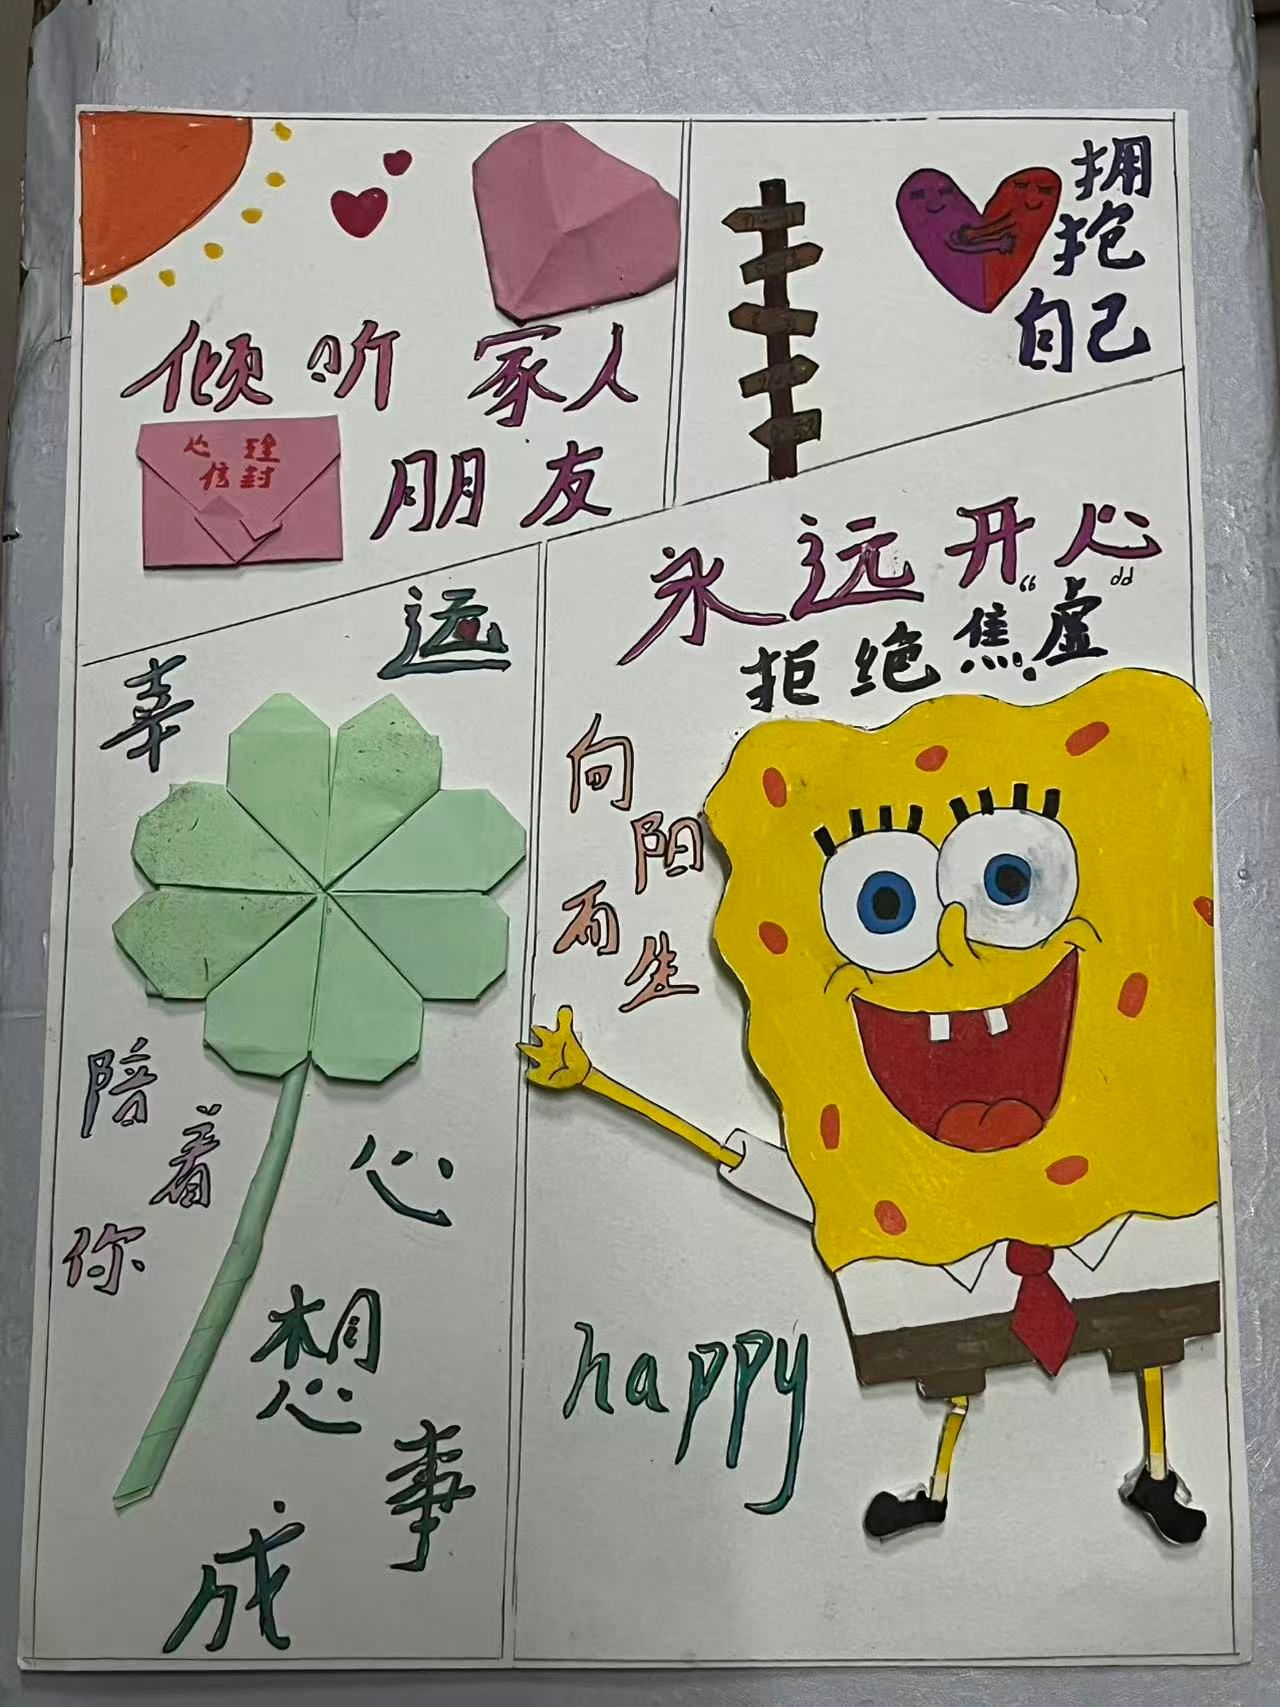 倾听 家人
朋友
心理
信封
拥
抱
自己
永远开心
拒绝“焦虚”
向
阳
而
生
happy
幸运
陪
着
你
心
想
事
成